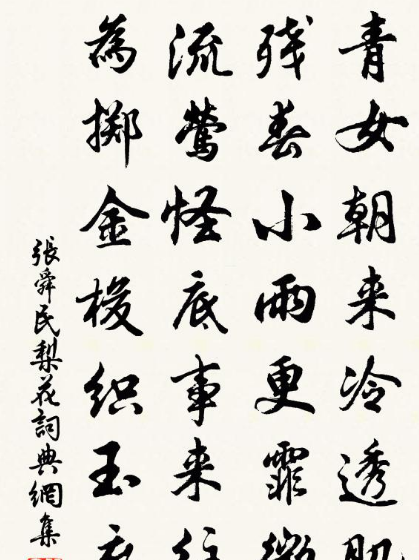 青女朝来冷透肌
残春小雨更霏微
流鶯怪底事来往
為掷金梭织玉衣
張舜民梨花詞典網集